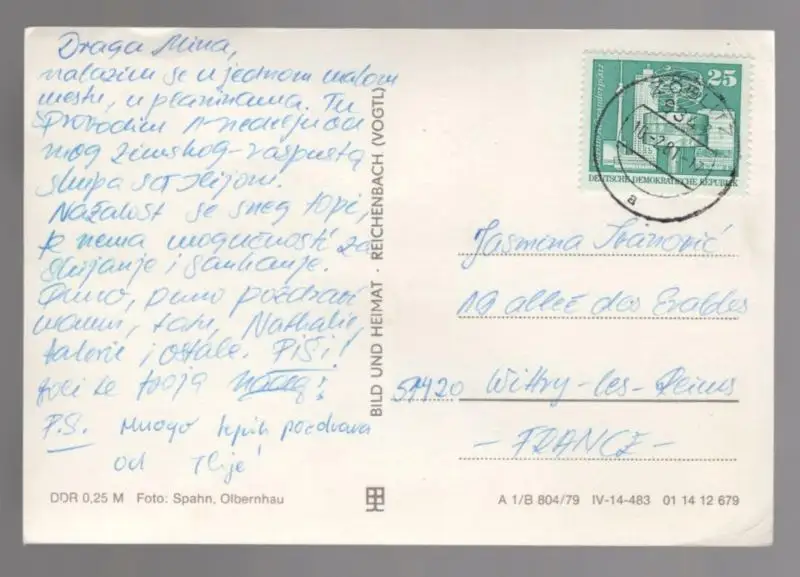 Draga Mina,
nalazim se u jednom malom
mestu, u planinama. Tu
provodim nedelju od
mog zimskog raspusta
skupa sa Ilijom.
Nažalost se sneg topi,
te nema mogućnosti za
skijanje i sankanje.
Puno, puno pozdravi
mamu, tatu, Nathalie,
Valerie i ostale. Piši!
voli te tvoja
P.S. Mnogo lepih pozdrava
od Ilije!
BILD UND HEIMAT · REICHENBACH (VOGTL)
25
DEUTSCHE DEMOKRATISCHE REPUBLIK
ZÖBLITZ
a
Jasmina Ivanović
19 allée des Erables
51420 Wittry-les-Reims
- FRANCE -
DDR 0,25 M Foto: Spahn, Olbernhau
A 1/B 804/79 IV-14-483 01 14 12 679